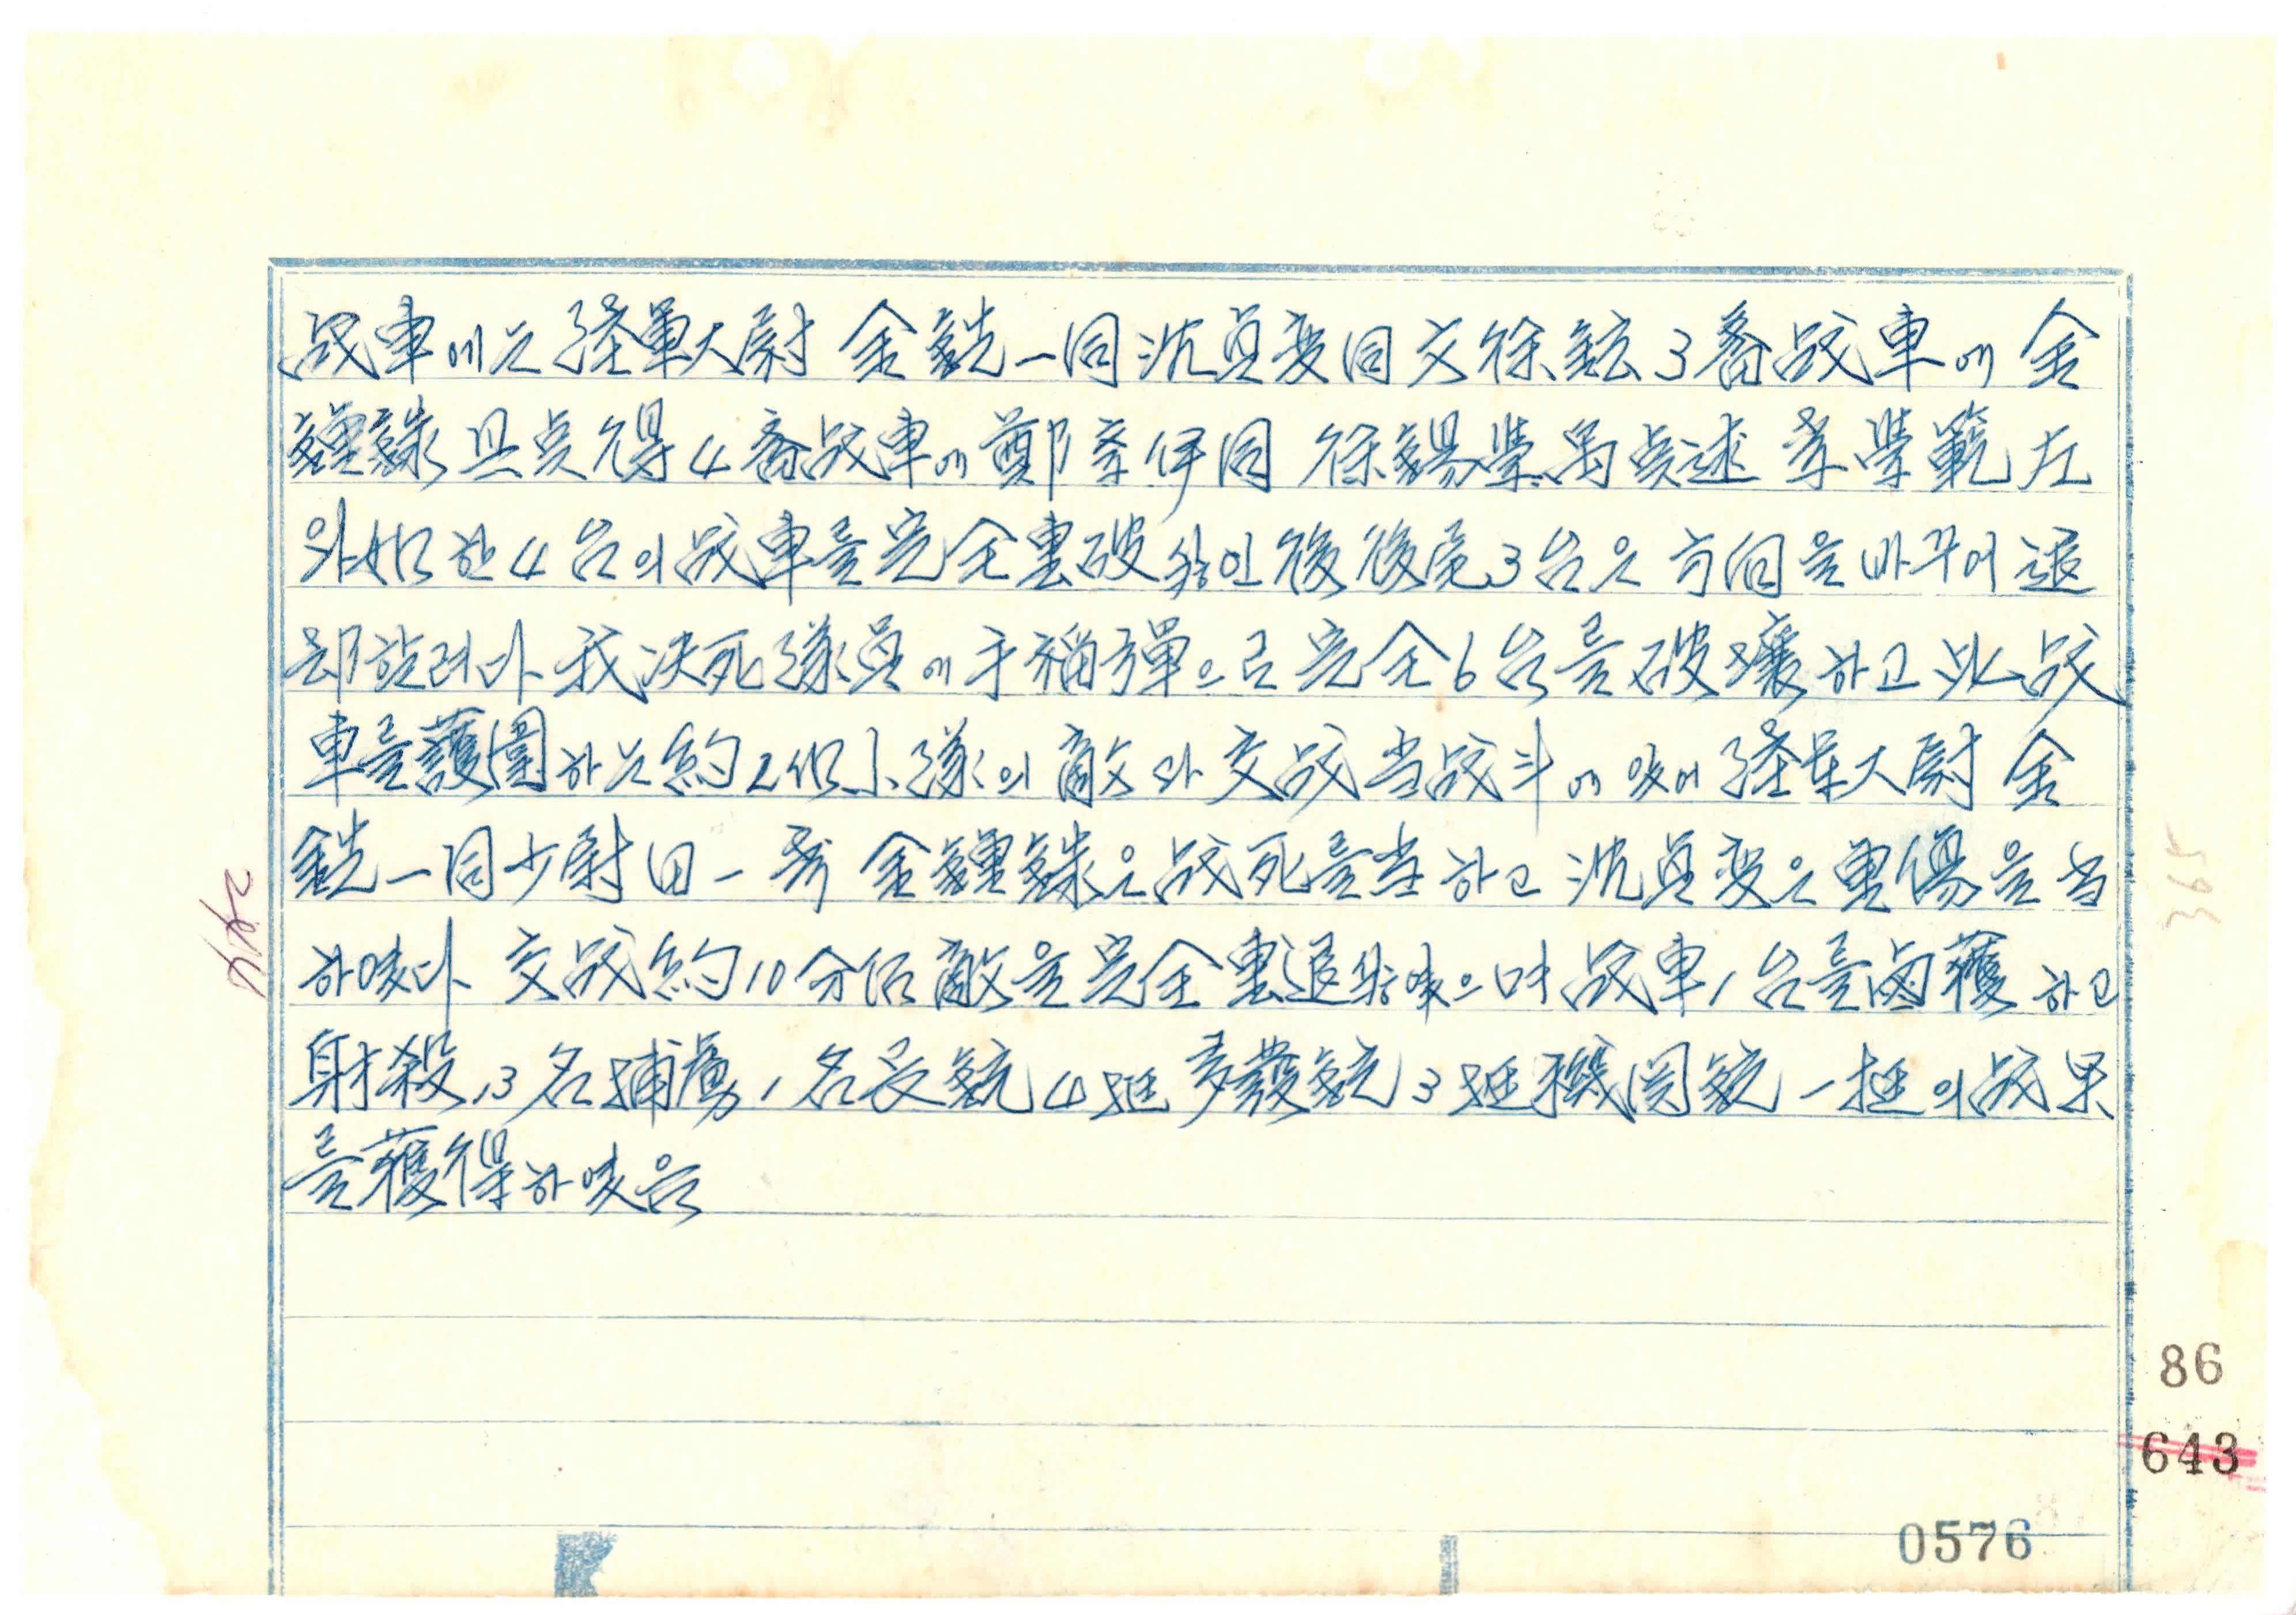 战車에는 陸軍大尉 金銑一 同 沈貞変 同 文徐鉉 3番战車에 金
鍾錄 具点得 4番战車에 鄭亨伊 同 徐錫崇 禹点述 李學範 左
와如한 4台의 战車를 完全 擊破 後 後尾 3台은 方向을 바꾸어 退
却할려다 我 决死隊員에 手榴弾으로 完全 6台를 破壞하고 此 战
車를 護圍하는 約 2個小隊의 敵와 交战 当战斗에 있어 陸軍大尉 金
銑一 同 少尉 田一秀 金鍾錄은 战死를 当하고 沈貞変은 重傷을 当
하였다 交战 約 10分 后 敵을 完全 擊退 으며 战車 1台를 鹵獲하고
射殺 13名 捕虜 1名 長銃 4挺 多發銃 3挺 機関銃 一挺의 战果
를 獲得하였음
86
643
0576